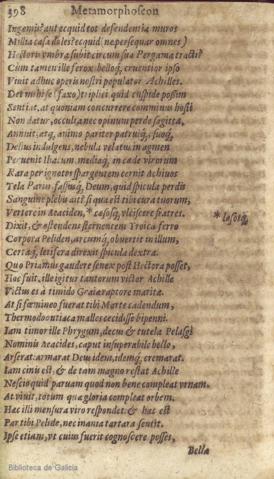 398 Metamorphoseon
Ingemis? aut ecquid tot defendentia muros
Milia casa doles? ecquid ne persequar omnes)
Hectoris vmbra subit circum sua Pergama tracti?
Cum tamen ille ferox belloq́, cruentior ipso
Viuit adhuc operis nostri populator Achilles.
Det mihi se (faxo) triplici quid cuspide possim
Sentiat, at quoniam concurrere cominus hosti
Non datur, occulta nec opinum perde sagitta,
Annuit, atq́, animo pariter patruiq́, suoq́,
Delius indulgens, nebula velatus in agmen
Peruenit Iliacum. mediaq́, in cæde virorum
Rara per ignotos spargentem cernit Achiuos
Tela Parin. fassusq́, Deum, quid spicula perdis
Sanguine plebis ait? si qua est tibi cura tuorum,
Vertere in Aeaciden, * cæsosq́, vlciscere fratres.
* læsosq́,
Dixit, & ostendens sternentem Troica ferro
Corpora Peliden, arcumq́, obuertit in illum,
Certaq́, letifera direxit spicula dextra.
Quo Priamus gaudere senex post Hectora posset,
Hoc fuit. ille igitur tantorum victor Achille
Victus es à timido Graiæ raptore maritæ.
At si fœmineo fuerat tibi Marte cadendum,
Thermodoontiaca malles cecidisse bipenni.
Iam timor ille Phrygum, decus & tutela Pelasgi
Nominis Aeacides, caput insuperabile bello,
Arserat: armarat Deus idem, idemq́, cremarat.
Iam cinis est, & de tam magno restat Achille
Nescio quid paruam quod non bene compleat vrnam.
At viuit, totum qua gloria compleat orbem.
Hæc illi mensura viro respondet. & hac est
Par tibi Pelide, nec inania tartara sentit.
Ipse etiam, vt cuius fuerit cognoscere posses,
Bella
Biblioteca de Galicia